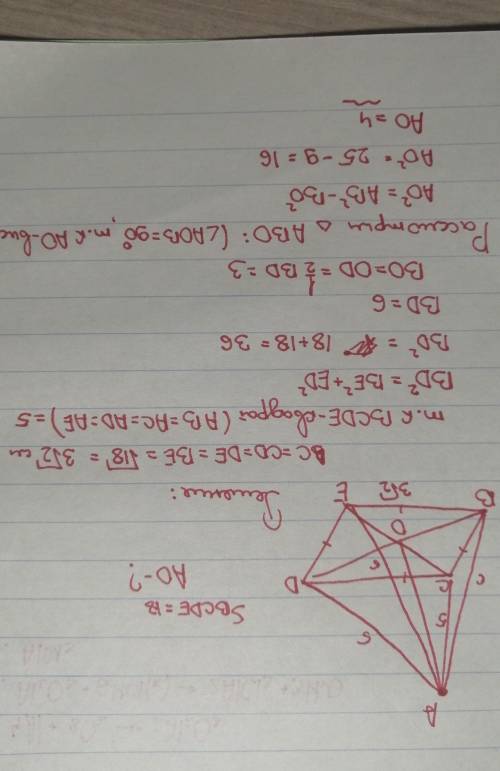 A
5
5
5
5
B
C
D
E
O
3√2
S BCDE = 18
AO - ?
Решение:
BC = CD = DE = BE = √18 = 3√2 см
т.к BCDE - квадрат (AB = AC = AD = AE) = 5
BD² = BE² + ED²
BD² = 18 + 18 = 36
BD = 6
BO = OD = 1/2 BD = 3
Рассмотрим △ ABO: (∠AOB = 90°, т.к AO - выс
AO² = AB² - BO²
AO² = 25 - 9 = 16
AO = 4